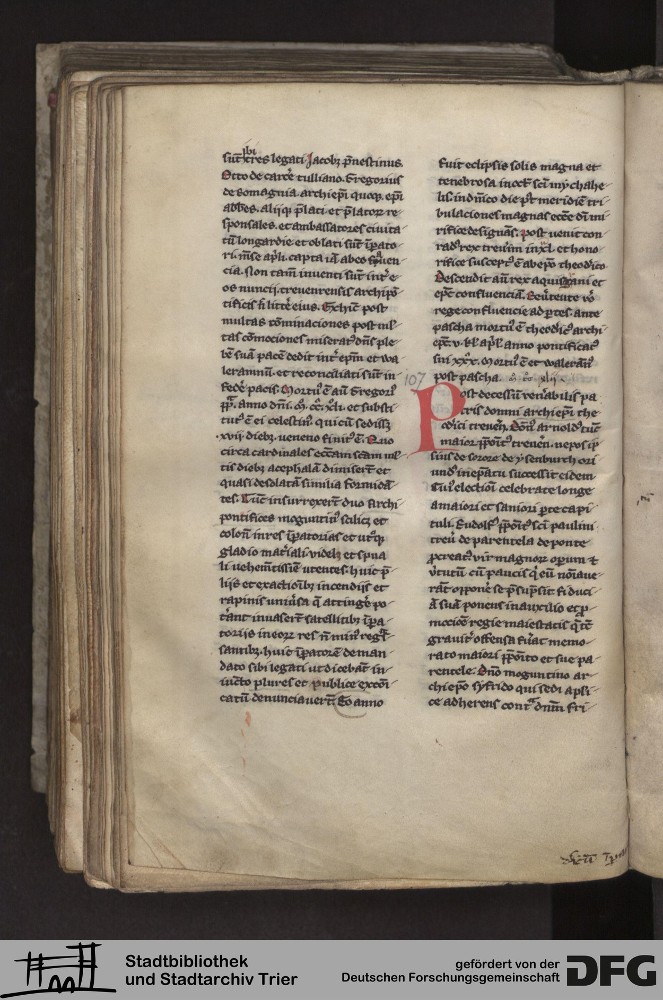 ibi
sūt tres legati. Jacobꝫ p̄nestinus.
Otto de carcē tulliano. Gregorius
de Romagnia. archiep̄i quoqꝫ. ep̄i
abb̄es. aliiqꝫ p̄lati et p̄latoꝝ re-
sponsales. et ambassatores civita-
tū longardie et oblati sūt īp̄ato-
cia. Non tam̄ inventi sūt int̄ e-
os nuncij. treverensis archipō-
tificis n̄ litt̄e eius. Et hic post
multas cōminaciones post mul-
tas cōmociones miserat͛ dn̄s ple-
bē suā pacē dedit int̄ ep̄m et wa-
lerannū. et reconciliati sūt in
fedē pacis. Mortu͛ ē aū Gregori͛
pp̄. anno dn̄i. m̄. cc̄. xli. et substi-
tut͛ ē ei celestin͛ qui cū sediss͛
xvij diebꝫ. veneno finit͛ ē. Quo
circa cardinales eccām scām mul-
tis diebꝫ acephalā dimiserūt et
quasi desolatā similia formidā-
tes. Tūc insurrexerūt duo Archi-
pontifices moguntin͛ scilicꝫ et
colon̄ in res īp̄atorias et ut͛qꝫ
gladio mat̄iali videlꝫ et sp̄uā-
li vehem̄tissīe utentes. huic p̄-
liis et exactionibꝫ incendijs et
rapinis univ̄sa q̄ attinḡe po-
t̄ant invaserūt satellitibꝫ īp̄a-
toriis in eoꝝ res
santibꝫ. huic īp̄atorē deman-
dato sibi legati ut dicebāt in-
iūcto plures et publice excōi-
catū denunciaverūt. Eo anno
fuit eclipsis solis magna et
tenebrosa. in oct͛ sc̄i mychahe-
lis. in dn̄ico die p͛t meridiē tri-
bulaciones magnas eccē dī mi-
rifice designās. post venit con-
rad͛ rex trevim in xl. et hono-
rifice suscept͛ ē ab ep̄o theodico.
Descendit aū rex aquisgrani et
ep̄c confluenciā. Revertente v̊
rege confluencie ad p̱tes. ante
pascha mortu͛ ē theodic͛ archi-
ep̄c. v. kl̄. ap̄l. anno pontificat͛
sui xxx. Mortu͛ ē et walerān͛
post pascha. m̊. cc̊. xlij
107
Post decessū ven̄abilis pa-
tris domini archiep̄i the-
odici treveē. Dōn͛ arnold͛ tūc
maior p̄poīt͛ treveē. nepos ip̄-
sius de sorore de ysenburch ori-
und͛ in ep̄atu successit eidem
Cui͛ electiōi celebrate longe
a maiori et saniori p̱te capi-
tuli. Rudolf͛ p̄poīt͛ sc̄i paulini
trev̄. de parentela de ponte
ꝓcreat͛ vir magnoꝝ opum ⁊
v̄tutū cū paucis q͛ eū noīave-
rāt oppone̅ se p̄sūpsit fiduci-
ā suā ponens in auxilio et ꝓ-
mocioē regie maiestatis q̄ t͛c
gravit͛ offensa fūat memo-
rato maiori p̄posito et sue pa-
rentele. Dn̄o moguntino ar-
chiep̄o syfrido qui sedi apl̄i-
ce adherens contͣ dn̄m fri-
Stadtbibliothek
und Stadtarchiv Trier
gefördert von der
Deutschen Forschungsgemeinschaft
DFG